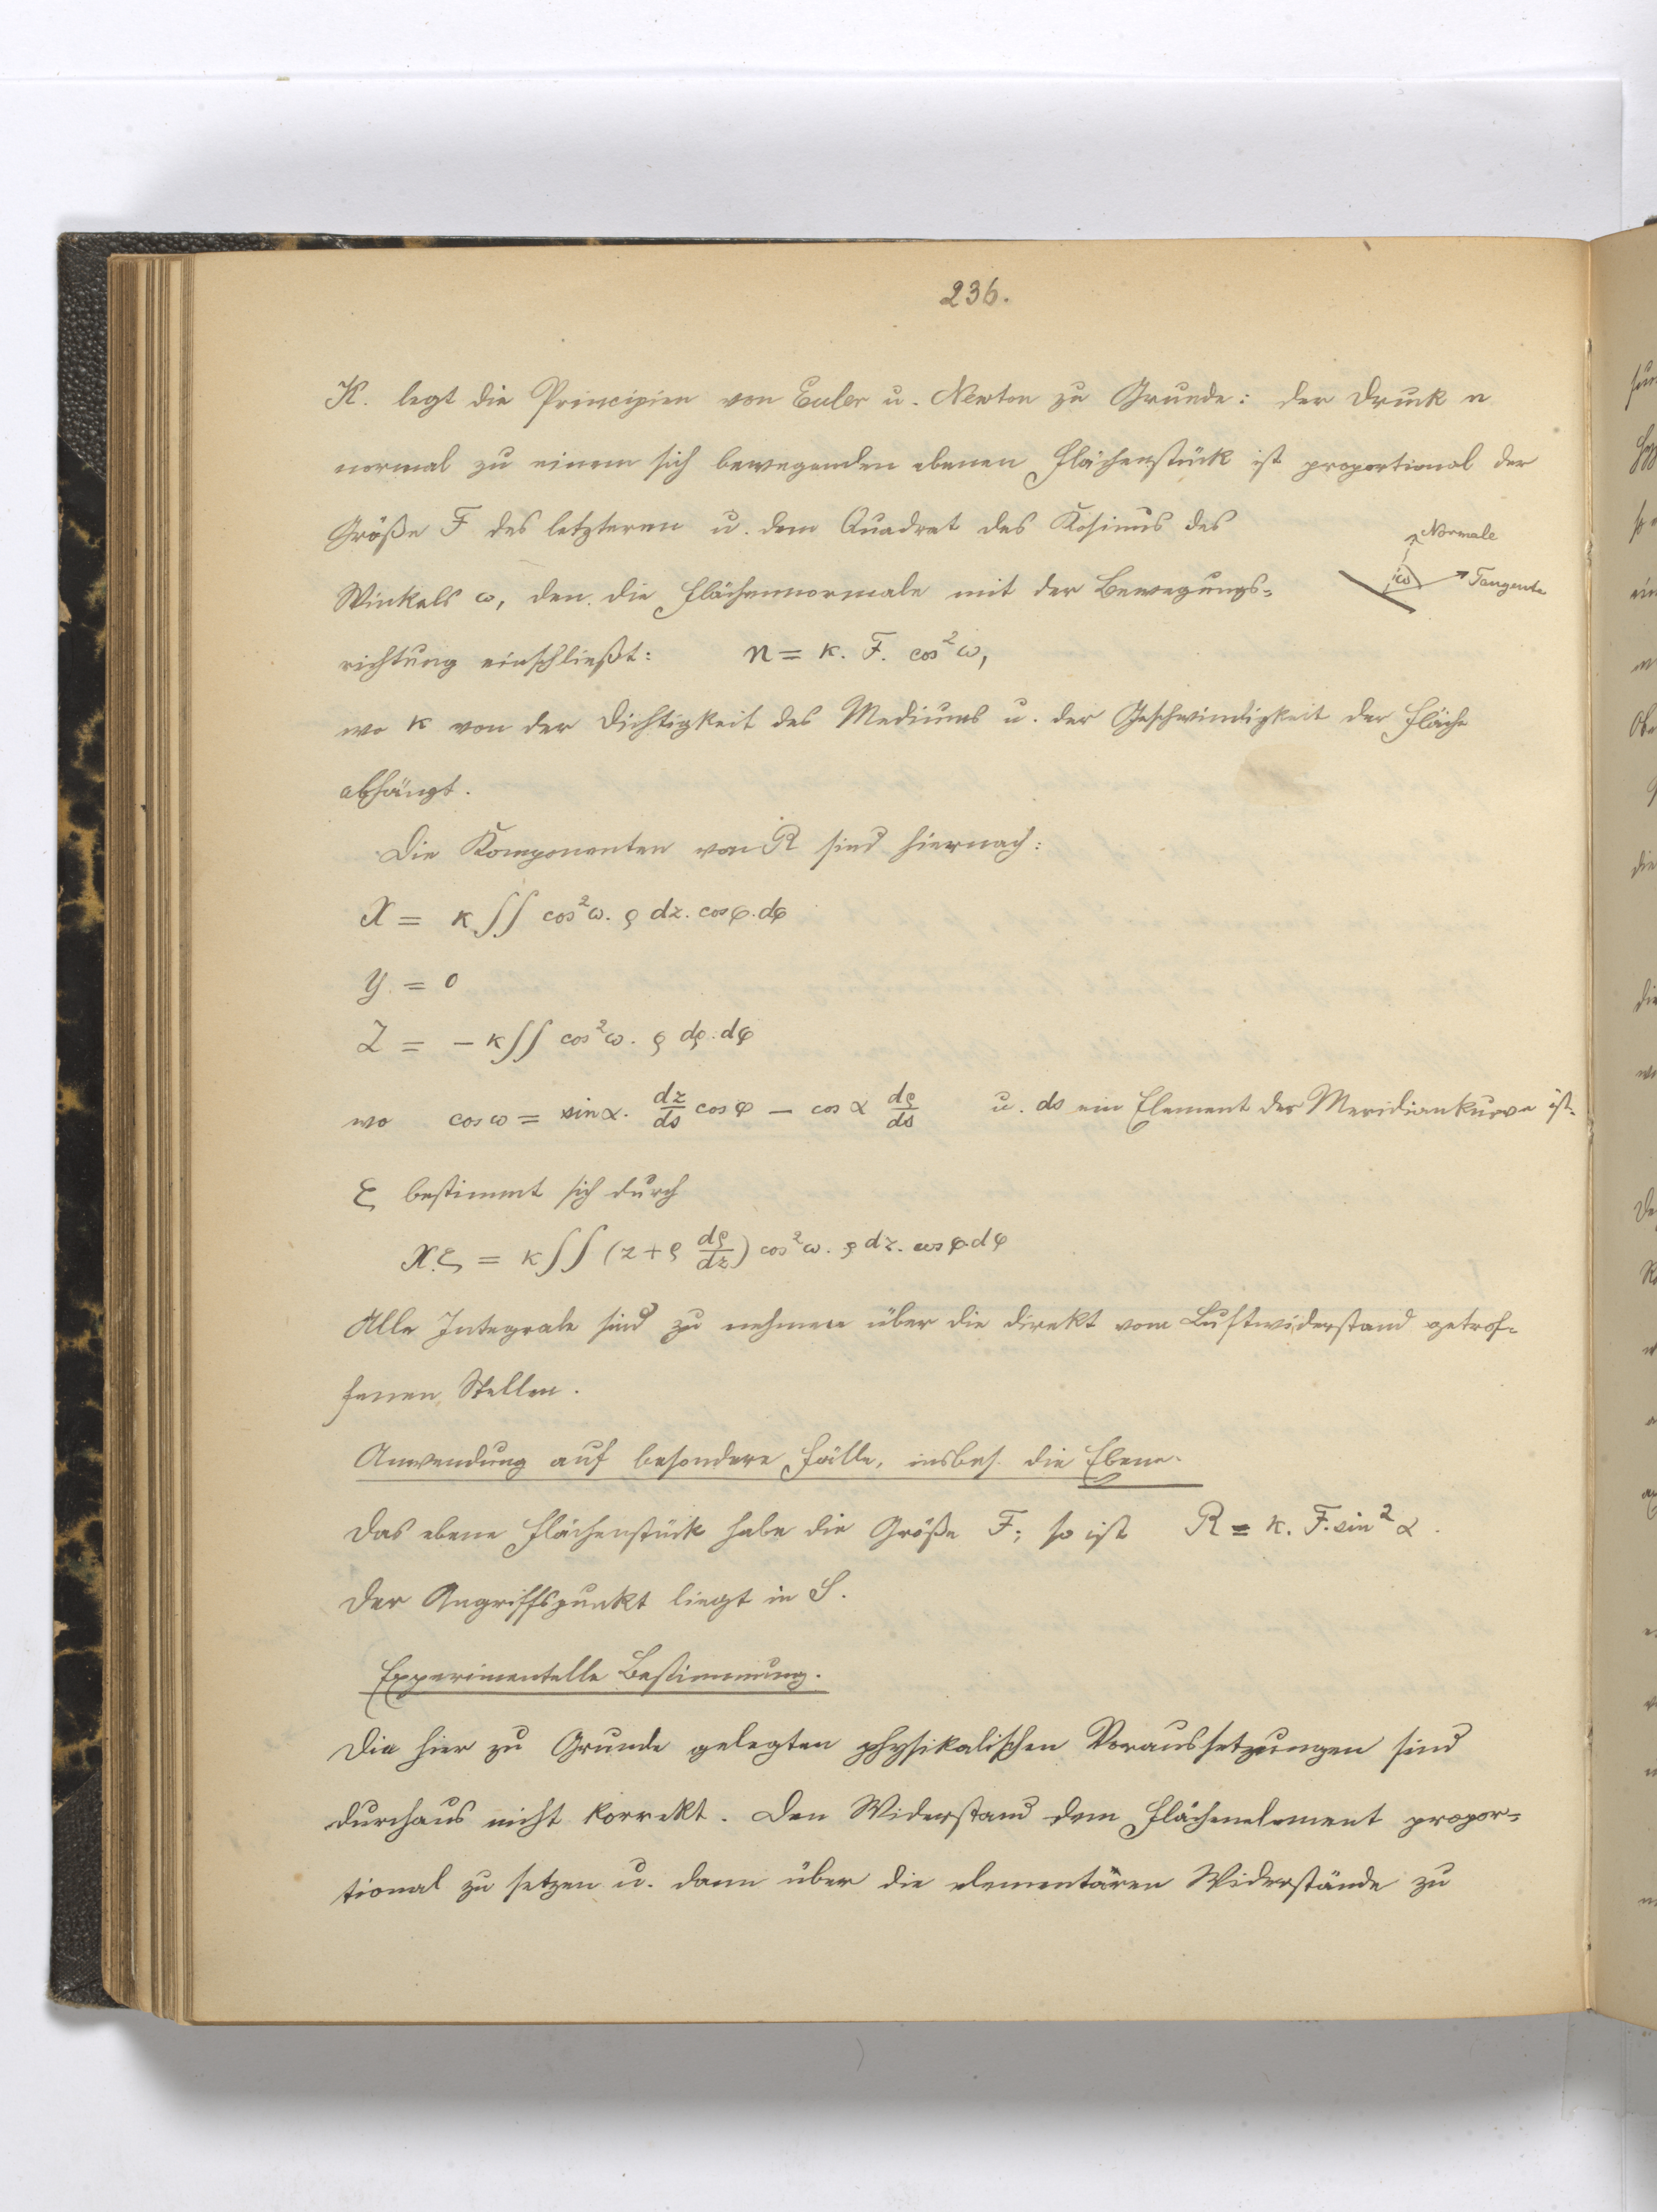 236.
K. legt die Principien von Euler u. Newton zu Grunde: der Druck n
normal zu einem sich bewegenden ebenen Flächenstück ist proportional der
Größe F des letzteren u. dem Quadrat des Kosinus des
Normale
Winkels ω, den die Flächennormale mit der Bewegungs-
ω Tangente
richtung einschließt: n = κ. F. cos² ω,
wo κ von der Dichtigkeit des Mediums u. der Geschwindigkeit der Fläche
abhängt.
Die Komponenten von R sind hiernach:
X = κ ∫∫ cos² ω. ρ dz. cos φ. dφ
Y = 0
Z = − κ ∫∫ cos² ω. ρ dρ. dφ
wo cos ω = sin α. dz/ds cos φ − cos α dρ/ds u. ds ein Element der Meridiankurve ist.
ζ bestimmt sich durch
X.ζ = κ ∫∫ (z + ρ dρ/dz) cos² ω. ρ dz. cos φ. dφ
Alle Integrale sind zu nehmen über die direkt vom Luftwiderstand getrof-
fenen Stellen.
Anwendung auf besondere Fälle, insbes. die Ebene.
Das ebene Flächenstück habe die Größe F; so ist R = κ. F. sin² α.
Der Angriffspunkt liegt in S.
Experimentelle Bestimmung.
Die hier zu Grunde gelegten physikalischen Voraussetzungen sind
durchaus nicht korrekt. Den Widerstand dem Flächenelement propor-
tional zu setzen u. dann über die elementären Widerstände zu